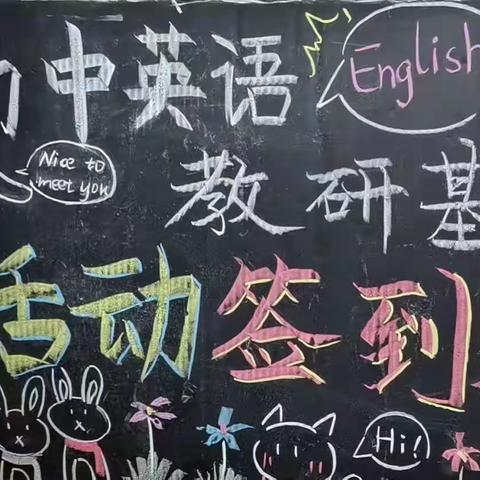 中英语
English
Nice to
meet you
教研基
活动签到
Hi!